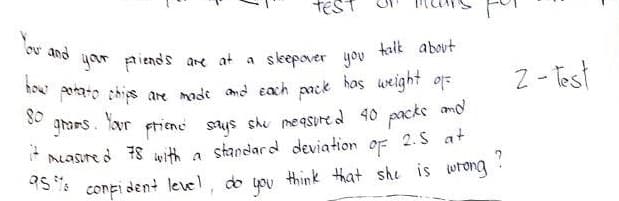 test
You and your friends are at a sleepover you talk about
how potato chips are made and each pack has weight of
80 grams. Your friend says she measured 40 packs and
it measured 78 with a standard deviation of 2.5 at
95% confident level, do you think that she is wrong?
Z-Test